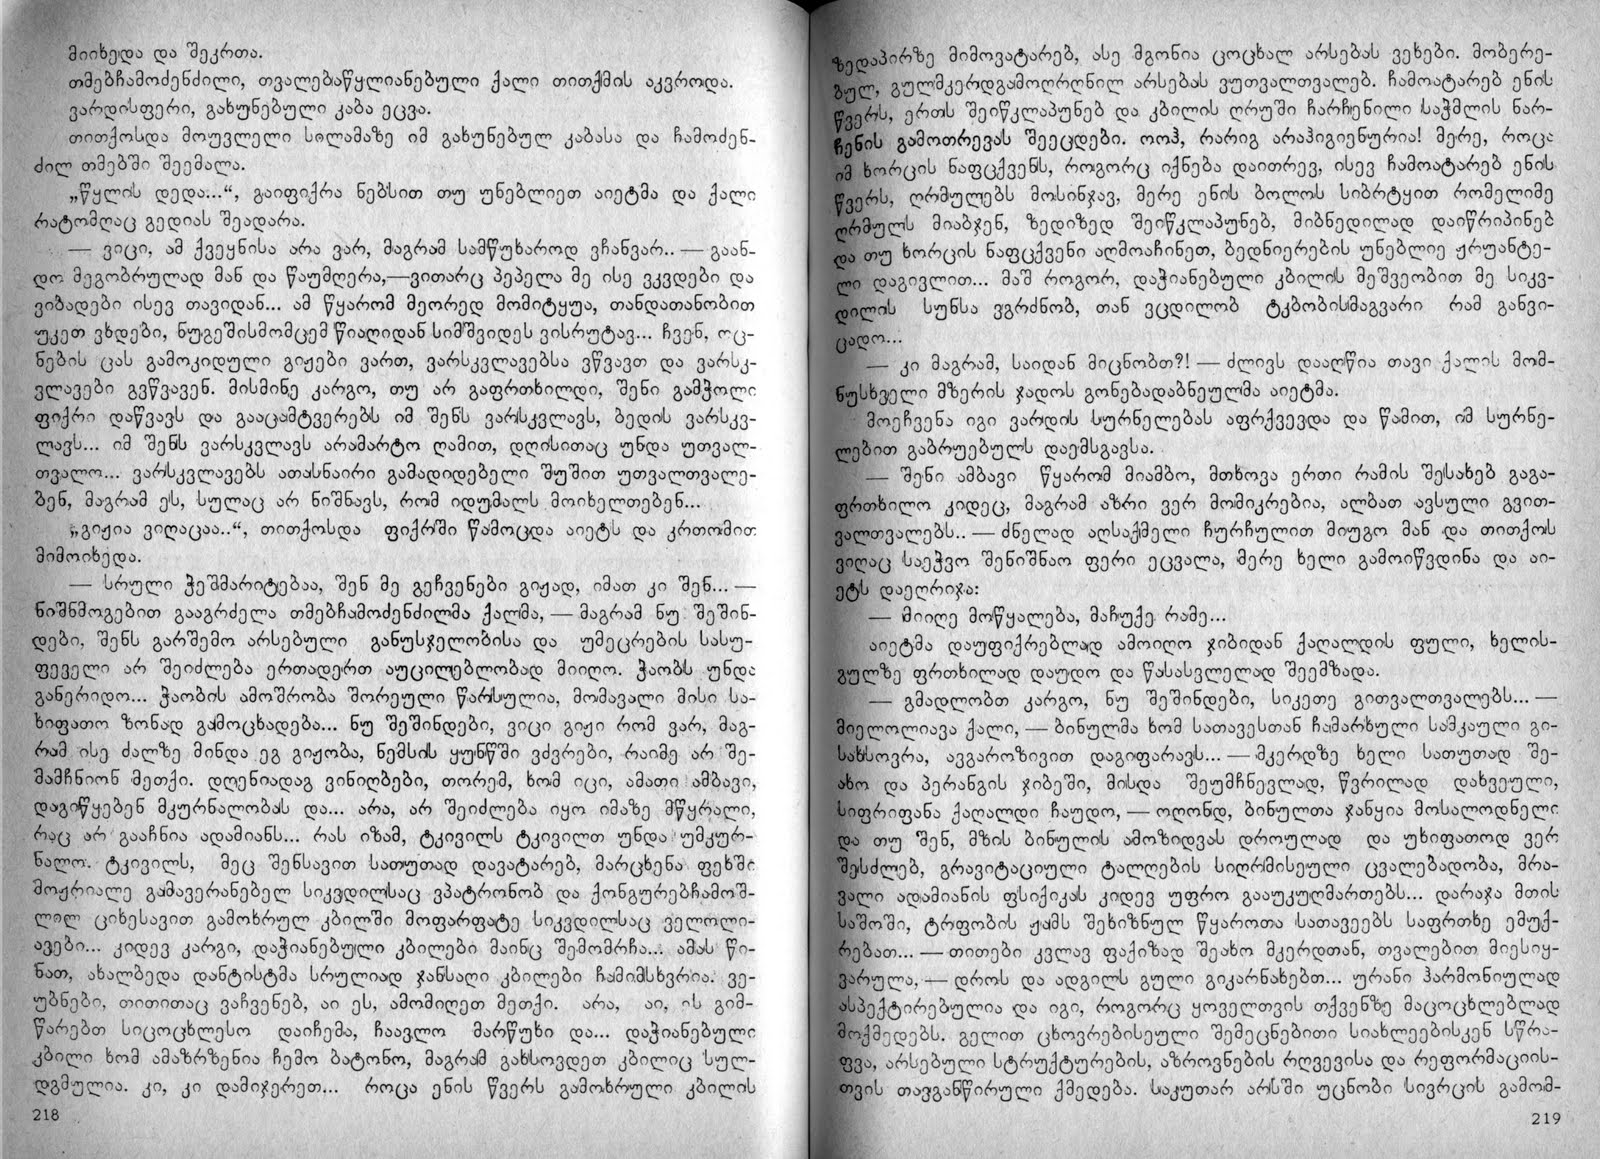 მიიხედა და შეკრთა.
თმებჩამოძენძილი, თვალებაწყლიანებული ქალი თითქმის აკვროდა.
ვარდისფერი, გახუნებული კაბა ეცვა.
თითქოსდა მოუვლელი სილამაზე იმ გახუნებულ კაბასა და ჩამოძენ-
ძილ თმებში შეემალა.
„წყლის დედა...“, გაიფიქრა ნებსით თუ უნებლიეთ აიეტმა და ქალი
რატომღაც გედიას შეადარა.
— ვიცი, ამ ქვეყნისა არა ვარ, მაგრამ სამწუხაროდ ვჩანვარ.. — გაან-
დო მეგობრულად მან და წაუმღერა,—ვითარც პეპელა მე ისე ვკვდები და
ვიბადები ისევ თავიდან... ამ წყარომ მეორედ მომიტყუა, თანდათანობით
უკეთ ვხდები, ნუგეშისმომცემ წიაღიდან სიმშვიდეს ვისრუტავ... ჩვენ, ოც-
ნების ცას გამოკიდული გიჟები ვართ, ვარსკვლავებსა ვწვავთ და ვარსკ-
ვლავები გვწვავენ. მისმინე კარგო, თუ არ გაფრთხილდი, შენი გამჭოლი
ფიქრი დაწვავს და გააცამტვერებს იმ შენს ვარსკვლავს, ბედის ვარსკვ-
ლავს... იმ შენს ვარსკვლავს არამარტო ღამით, დღისითაც უნდა უთვალ-
თვალო... ვარსკვლავებს ათასნაირი გამადიდებელი შუშით უთვალთვალე-
ბენ, მაგრამ ეს, სულაც არ ნიშნავს, რომ იდუმალს მოიხელთებენ...
„გიჟია ვიღაცაა..“, თითქოსდა ფიქრში წამოცდა აიეტს და კრთომით
მიმოიხედა.
— სრული ჭეშმარიტებაა, შენ მე გეჩვენები გიჟად, იმათ კი შენ... —
ნიშნმოგებით გააგრძელა თმებჩამოძენძილმა ქალმა, — მაგრამ ნუ შეშინ-
დები, შენს გარშემო არსებული განუსჯელობისა და უმეცრების სასუ-
ფეველი არ შეიძლება ერთადერთ აუცილებლობად მიიღო. ჭაობს უნდა
განერიდო... ჭაობის ამოშრობა შორეული წარსულია, მომავალი მისი სა-
ხიფათო ზონად გამოცხადება... ნუ შეშინდები, ვიცი გიჟი რომ ვარ, მაგ-
რამ ისე ძალზე მინდა ეგ გიჟობა, ნემსის ყუნწში ვძვრები, რაიმე არ შე-
მამჩნიონ მეთქი. დღენიადაგ ვინიღბები, თორემ, ხომ იცი, ამათი ამბავი,
დაგიწყებენ მკურნალობას და... არა, არ შეიძლება იყო იმაზე მწყრალი,
რაც არ გააჩნია ადამიანს... რას იზამ, ტკივილს ტკივილთ უნდა უმკურ-
ნალო. ტკივილს, მეც შენსავით სათუთად დავატარებ, მარცხენა ფეხში
მოჟრიალე გამავერანებელ სიკვდილსაც ვპატრონობ და ქონგურებჩამოშ-
ლილ ციხესავით გამოხრულ კბილში მოფარფატე სიკვდილსაც ველოლი-
ავები... კიდევ კარგი, დაჭიანებული კბილები მაინც შემომრჩა... ამას წი-
ნათ, ახალბედა დანტისტმა სრულიად ჯანსაღი კბილები ჩამიმსხვრია. ვე-
უბნები, თითითაც ვაჩვენებ, აი ეს, ამომიღეთ მეთქი. არა, აი, ის გიმ-
წარებთ სიცოცხლესო დაიჩემა, ჩაავლო მარწუხი და... დაჭიანებული
კბილი ხომ ამაზრზენია ჩემო ბატონო, მაგრამ გახსოვდეთ კბილიც სულ-
დგმულია. კი, კი დამიჯერეთ... როცა ენის წვერს გამოხრული კბილის
218
ზედაპირზე მიმოვატარებ, ასე მგონია ცოცხალ არსებას ვეხები. მობერე-
ბულ, გულმკერდგამოღრღნილ არსებას ვუთვალთვალებ. ჩამოატარებ ენის
წვერს, ერთს შეიწკლაპუნებ და კბილის ღრუში ჩარჩენილი საჭმლის ნარ-
ჩენის გამოთრევას შეეცდები. ოოჰ, რარიგ არაჰიგიენურია! მერე, როცა
იმ ხორცის ნაფცქვენს, როგორც იქნება დაითრევ, ისევ ჩამოატარებ ენის
წვერს, ღრმულებს მოსინჯავ, მერე ენის ბოლოს სიბრტყით რომელიმე
ღრმულს მიაბჯენ, ზედიზედ შეიწკლაპუნებ, მიბნედილად დაიწრიპინებ
და თუ ხორცის ნაფცქვენი აღმოაჩინეთ, ბედნიერების უნებლიე ჟრუანტე-
ლი დაგივლით... მაშ როგორ, დაჭიანებული კბილის მეშვეობით მე სიკვ-
დილის სუნსა ვგრძნობ, თან ვცდილობ ტკბობისმაგვარი რამ განვი-
ცადო...
— კი მაგრამ, საიდან მიცნობთ?! — ძლივს დააღწია თავი ქალის მომ-
ნუსხველი მზერის ჯადოს გონებადაბნეულმა აიეტმა.
მოეჩვენა იგი ვარდის სურნელებას აფრქვევდა და წამით, იმ სურნე-
ლებით გაბრუებულს დაემსგავსა.
— შენი ამბავი წყარომ მიამბო, მთხოვა ერთი რამის შესახებ გაგა-
ფრთხილო კიდეც, მაგრამ აზრი ვერ მომიკრებია, ალბათ ავსული გვით-
ვალთვალებს.. — ძნელად აღსაქმელი ჩურჩულით მიუგო მან და თითქოს
ვიღაც საეჭვო შენიშნაო ფერი ეცვალა, მერე ხელი გამოიწვდინა და აი-
ეტს დაეღრიჯა:
— მიიღე მოწყალება, მაჩუქე რამე...
აიეტმა დაუფიქრებლად ამოიღო ჯიბიდან ქაღალდის ფული, ხელის-
გულზე ფრთხილად დაუდო და წასასვლელად შეემზადა.
— გმადლობთ კარგო, ნუ შეშინდები, სიკეთე გითვალთვალებს... —
მიელოლიავა ქალი, — ბინულმა ხომ სათავესთან ჩამარხული სამკაული გი-
სახსოვრა, ავგაროზივით დაგიფარავს... — მკერდზე ხელი სათუთად შე-
ახო და პერანგის ჯიბეში, მისდა შეუმჩნევლად, წვრილად დახვეული,
სიფრიფანა ქაღალდი ჩაუდო, — ოღონდ, ბინულთა ჯანყია მოსალოდნელი
და თუ შენ, მზის ბინულის ამოზიდვას დროულად და უხიფათოდ ვერ
შესძლებ, გრავიტაციული ტალღების სიღრმისეული ცვალებადობა, მრა-
ვალი ადამიანის ფსიქიკას კიდევ უფრო გააუკუღმართებს... დარაჯა მთის
საშოში, ტრფობის ჟამს შეხიზნულ წყაროთა სათავეებს საფრთხე ემუქ-
რებათ... — თითები კვლავ ფაქიზად შეახო მკერდთან, თვალებით მიესიყ-
ვარულა, — დროს და ადგილს გული გიკარნახებთ... ურანი ჰარმონიულად
ასპექტირებულია და იგი, როგორც ყოველთვის თქვენზე მაცოცხლებლად
მოქმედებს. გელით ცხოვრებისეული შემეცნებითი სიახლეებისკენ სწრა-
ფვა, არსებული სტრუქტურების, აზროვნების რღვევისა და რეფორმაციის-
თვის თავგანწირული ქმედება. საკუთარ არსში უცნობი სივრცის გამომ-
219